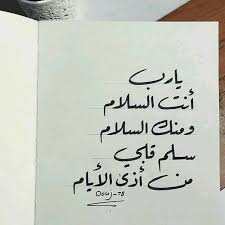 يارب
أنت السلام
ومنك السلام
سلم قلبي
من أذى الأيام